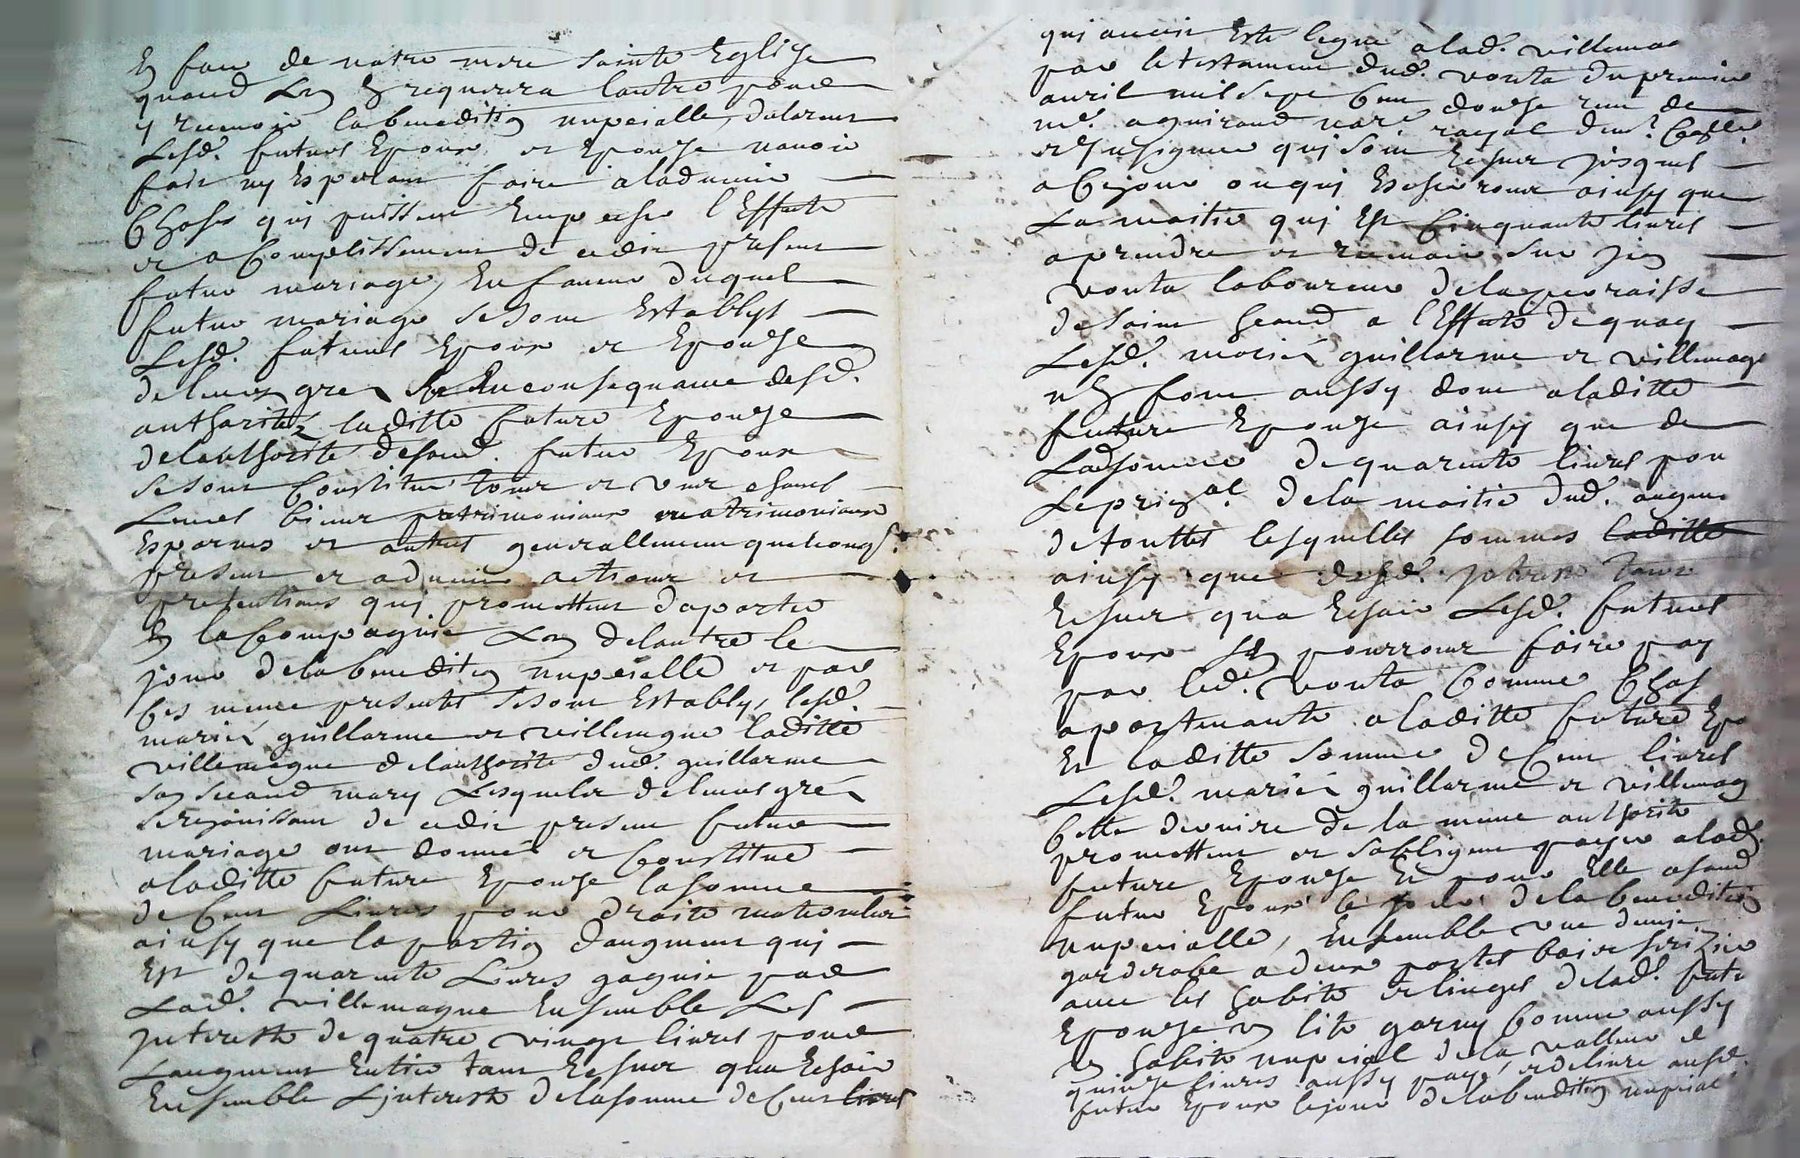 En face de notre mere sainte Eglise
quand Lun En requerra lautre pour
y recevoir la benediction nupcialle, declarant
Lesd. futurs Epoux et Epouze navoir
fait ny Esperant faire aladvenir
Choses qui puissent Empecher l'Effaite
et acomplissement de cedit present
futur mariage, En faveur duquel
futur mariage se sont Establys
Lesd. futurs Epoux et Epouze
de leurs grez En consequance desd.
authoritéz laditte future Epouze
de lauthorité desond. futur Epoux
se sont Constitué tous et uns chasuns
Leurs biens patrimoniaux matrimoniaux
Esparnes et autres generallement quelconqs.
present et advenir actions et
pretentions qui promettent daporter
En la Compagnie Lun de lautre le
jour de la benediction nupcialle et par
Ces meme presentes se sont Establys, lesd.
mariéz guillarme et villemagne laditte
villemagne de lauthorité dud. guillarme
son second mary Lesquels de leurs gréz
se rejouissant de cedit present futur
mariage ont donné et Constitué
a laditte future Epouze la somme
de Cent Livres pour droits maternelles
ainsy que la portion daugment qui
Est de quarente Livres gagnée par
Lad. villemagne Ensemble Les
Jnterests de quatre vingt livres pour
Laugment Entier tant Echeus qua Echoir
Ensemble Ljnterest de la somme de Cent livres
qui avoir Esté legué a lad. villemag
par le testament dud. vouta du premier
avril mil sept Cent douze receu de
me. aguiraud nore. royal
et Jnsignué qui sont Echeus jusques
a Cejour ou qui Echerront ainsy que
La moitié qui Est Cinquante livres
a prendre et recevoir sur Jean
vouta laboureur de la parroisse
de saint a l'Effaite de quoy
Lesd. mariéz guillarme et villemagne
En font aussy don a laditte
future Epouze ainsy que de
Ladsomme de quarente livres pour
Leprinal. de la moitié dud. augment
de touttes lesquelles sommes laditte
ainsy que desd. jnterest tant
Echeus qua Echoir Lesd. futurs
Epoux En pourront faire pay
par led. vouta Comme Chos
apartenante a laditte future Epo
Et laditte somme de Cent livres
Lesd. mariéz guillarme et villemag
Cette derniere de la meme authorité
promettent et sobligent payer a lad.
future Epouze Et pour Elle asond
futur Epoux le jour de la benediction
nupcialle, Ensemble une demie
garderobe a deux portes bois
avec les habits et linges de lad. futu
Epouze un lit garny Comme aussy
un habit nupcial de la valleur de
quinze livres aussy payé, et delivré ausd.
futur Epoux lejour de la benediction nupcial